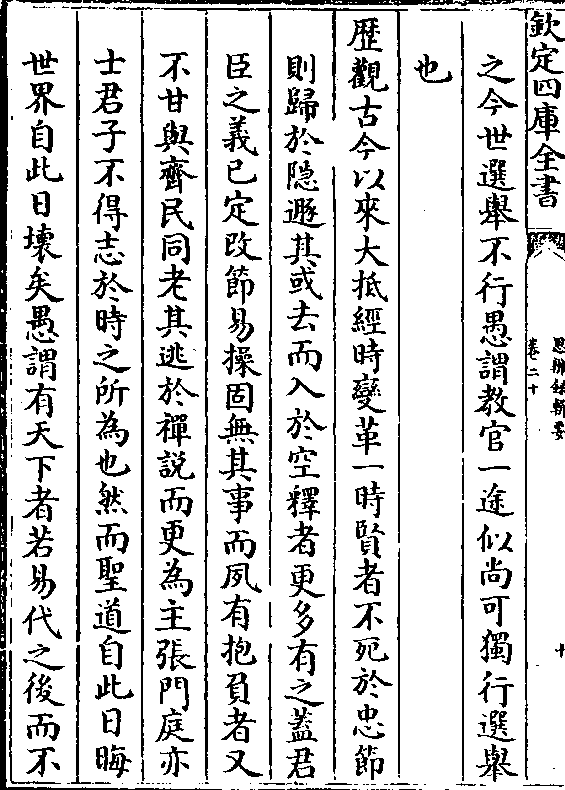 欽定四庫全書
思辨錄輯要
卷二十
十
之今世選舉不行愚謂教官一途似尚可獨行選舉
也
歴觀古今以來大抵經時變革一時賢者不死於忠節
則歸於隠遯其或去而入於空釋者更多有之蓋君
臣之義已定改節易操固無其事而夙有抱負者又
不甘與齊民同老其逃於禪説而更為主張門庭亦
士君子不得志於時之所為也然而聖道自此日晦
世界自此日壞矣愚謂有天下者若易代之後而不